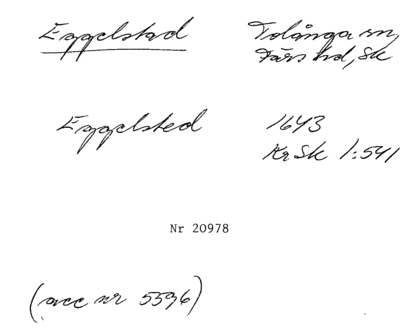 Eggelstad Tolånga sn,
Färs hd, Sk
Eggelsted 1643
KrSk 1:541
Nr 20978
(acc nr 5596)